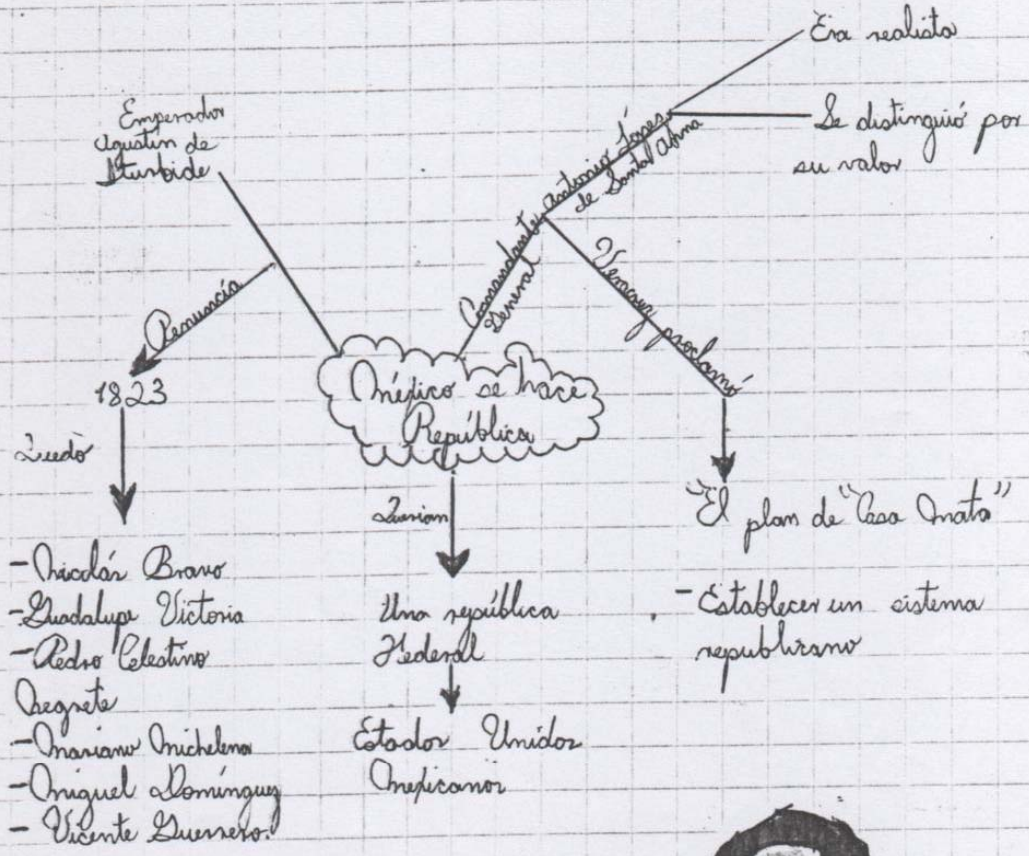 Emperador
Agustin de
Iturbide
Renuncia
1823
Quedò
-Nicolás Bravo
-Guadalupe Victoria
-Pedro Celestino
Negrete
-Mariano Michelena
-Miguel Domínguez
- Vicente Guerrero.
México se hace
República
Querian
Una república
Federal
Estados Unidos
Mexicanos
Comandante
General
Antonio López
de Santa Anna
Era realista
Se distinguió por
su valor
Veracruz proclamó
"El plan de "Casa Mata"
- Establecer un sistema
republicano